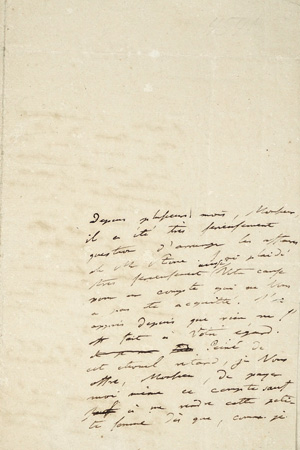 Depuis plusieurs mois, Monsieur
il a été très sérieusement
question d'arranger les affaires
de M
être sérieusement Votre cause
pour un compte qui ne Vous
a pas été acquitté. J'ai
appris depuis que rien ne f
fut fait à Votre égard.
Peiné de
cet éternel retard, je Vous
offre, Monsieur, de payer
moi même ce compte sauf
à me rendre cette petite
somme dès que, comme je